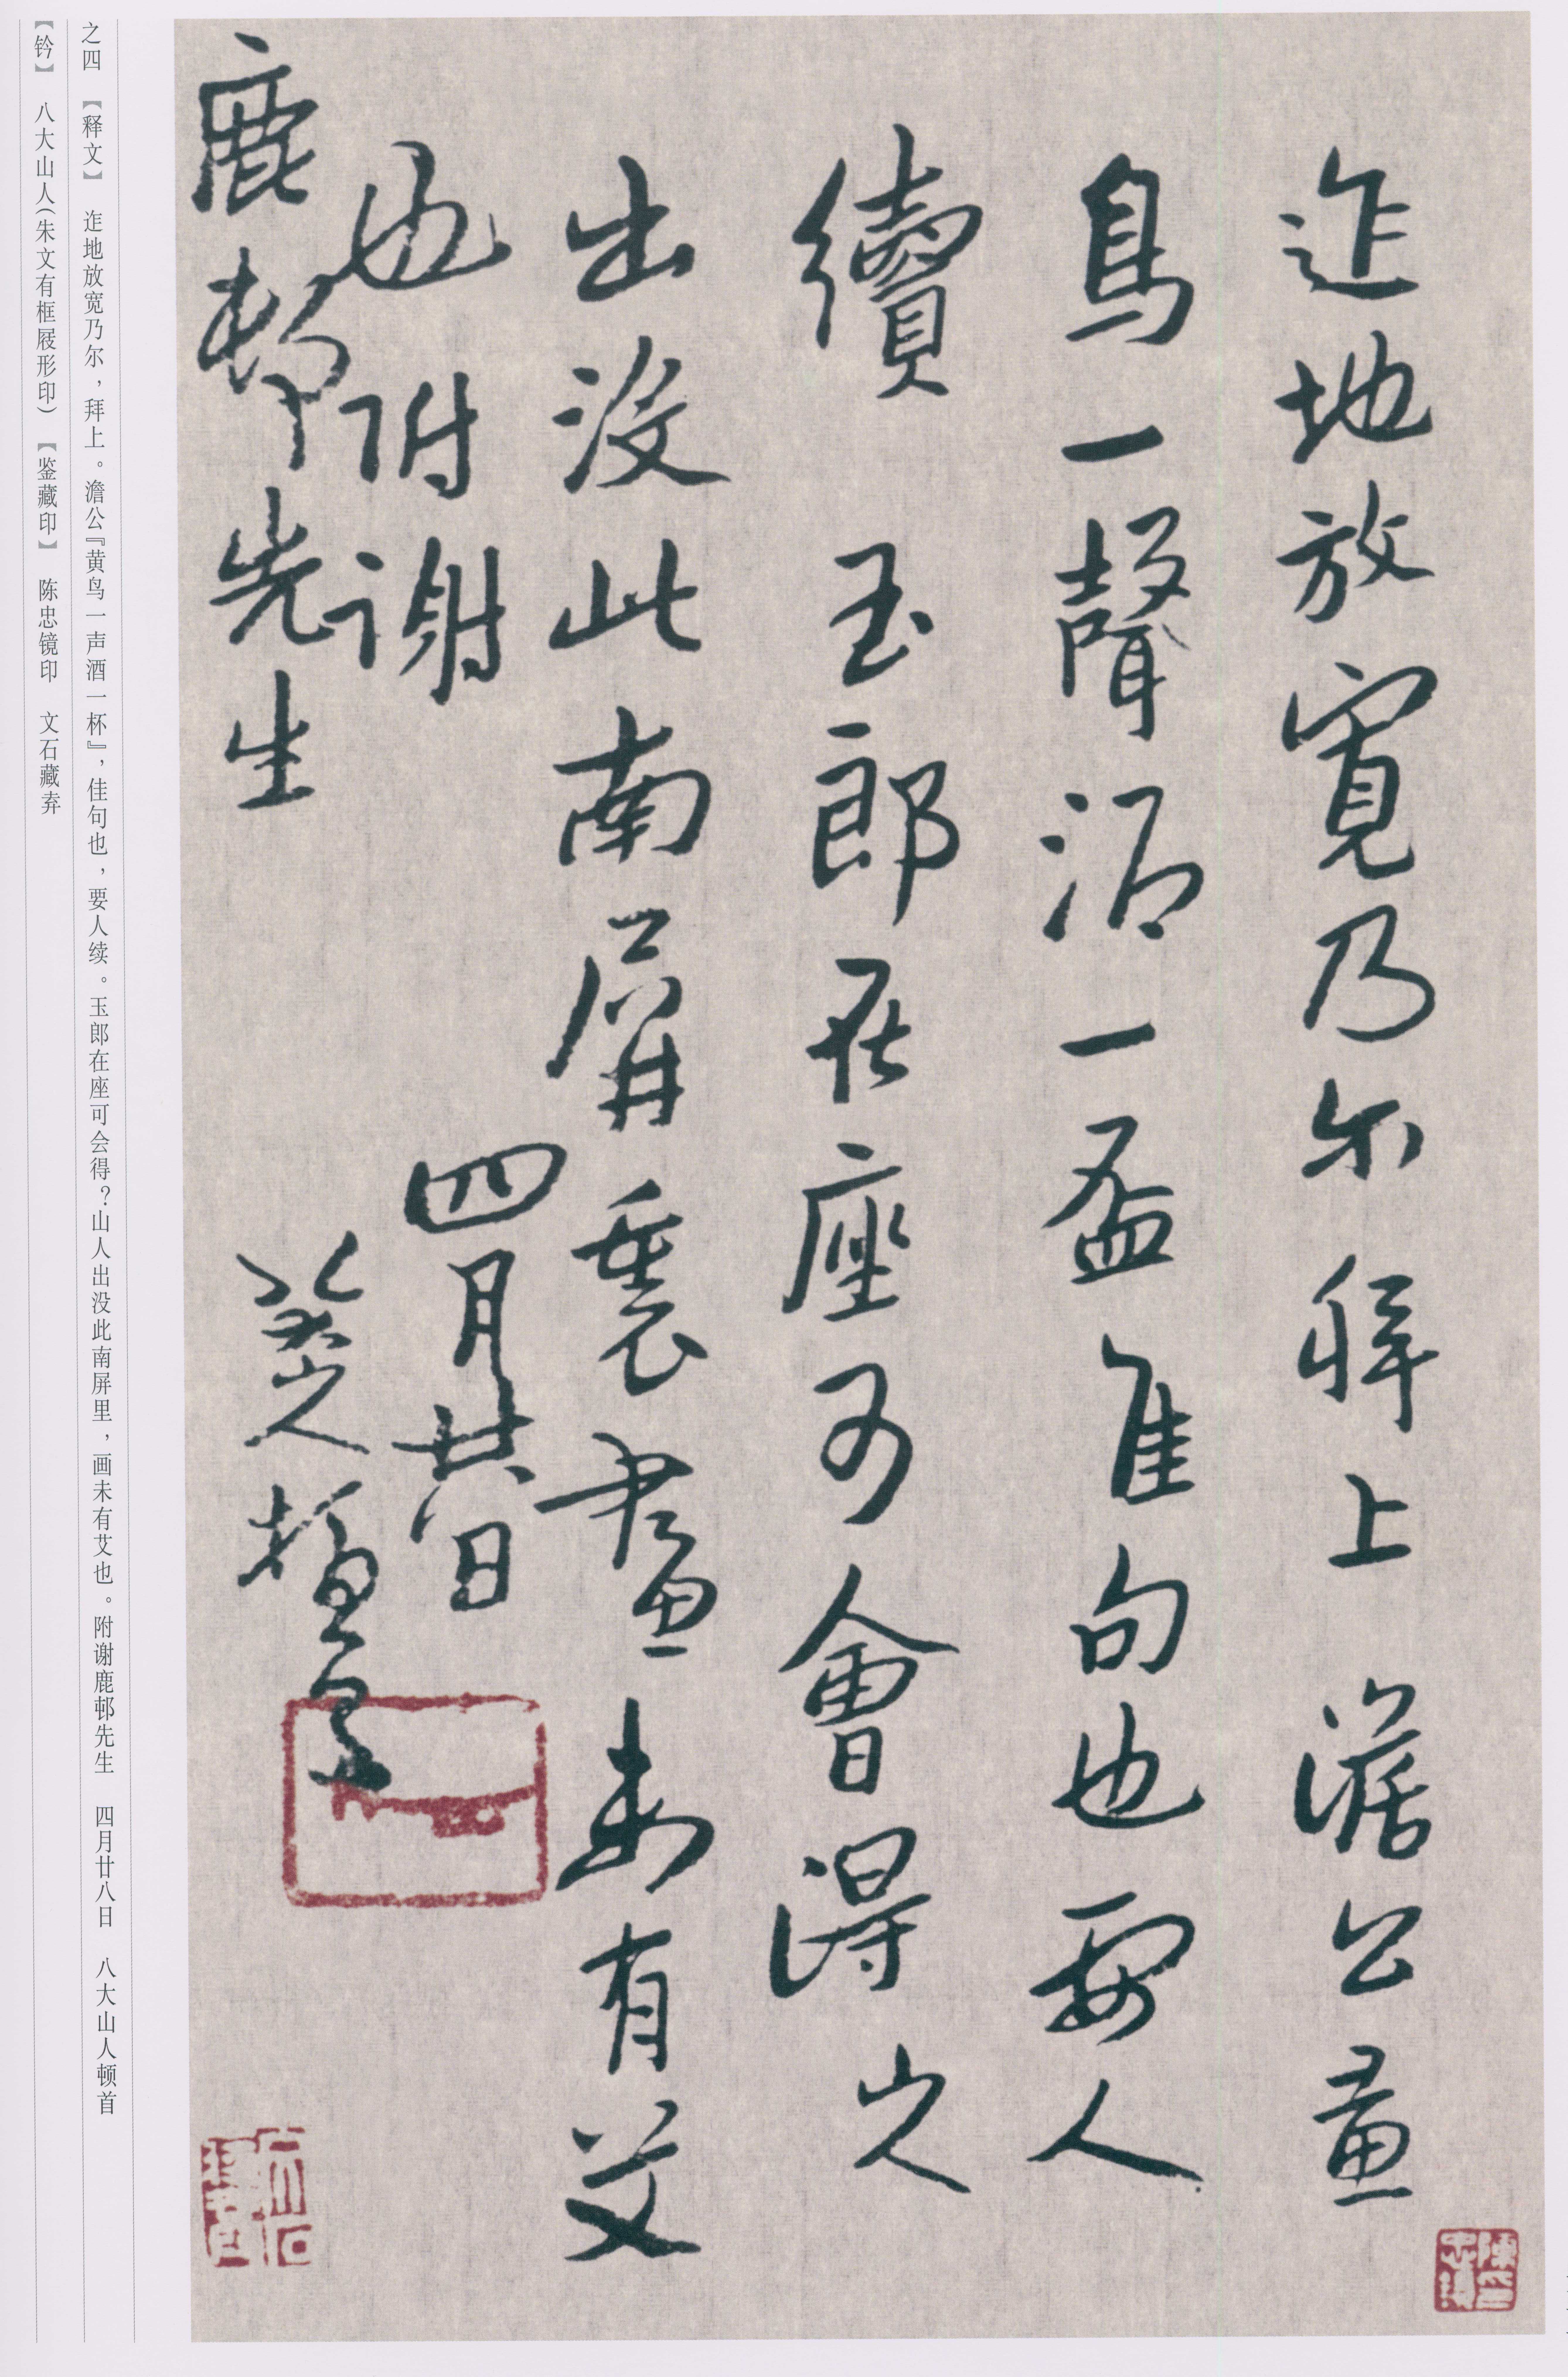 迮地放寬乃尔拜上 澹公畫
鳥一聲酒一盃佳句也要人
續 玉郎在座可會得山人
出没此南屏裏畫未有艾
也附謝 四月廿八日
鹿邨先生 八大山人頓首
之四 【释文】 迮地放宽乃尔，拜上。澹公『黄鸟一声酒一杯』，佳句也，要人续。玉郎在座可会得？山人出没此南屏里，画未有艾也。附谢鹿邨先生 四月廿八日 八大山人顿首
【钤】 八大山人（朱文有框屐形印） 【鉴藏印】 陈忠镜印 文石藏弆